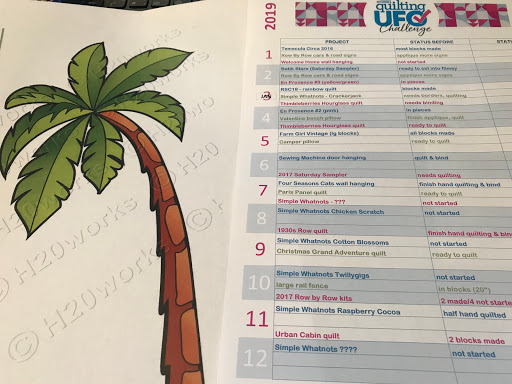 © H2Oworks
© H2Oworks
© H2O
H2Oworks
©
2019
quilting
UFO
Challenge
PROJECT STATUS BEFORE STATUS
1 Temecula Circa 2016 most blocks made
Row By Row cars and road signs applique more signs
Welcome Home wall hanging not started
2 Batik Stars (Saturday Sampler) ready to
Row By Row cars & road signs applique more signs
En Provence #3 (yellow/green) in pieces
RSC18 - rainbow quilt blocks made
Simple Whatnots - Crackerjack needs borders, quilting
Thimbleberries Hourglass quilt needs binding
4 En Provence #2 (pink) in pieces
Valentine bench pillow finish applique, quilt
Thimbleberries Hourglass quilt ready to quilt
5 Farm Girl Vintage (lg blocks) all blocks made
Camper pillow ready to quilt
6 Sewing Machine door hanging quilt & bind
2017 Saturday Sampler needs quilting
7 Four Seasons Cats wall hanging finish hand quilting & bind
Paris Panel quilt ready to quilt
Simple Whatnots - ??? not started
8 Simple Whatnots Chicken Scratch not started
1930s Row quilt finish hand quilting & bind
9 Simple Whatnots Cotton Blossoms not started
Christmas Grand Adventure quilt ready to quilt
10 Simple Whatnots Twillygigs not started
large rail fence in blocks (20")
2017 Row by Row kits 2 made/4 not started
11 Simple Whatnots Raspberry Cocoa half hand quilted
Urban Cabin quilt 2 blocks made
12 Simple Whatnots ???? not started